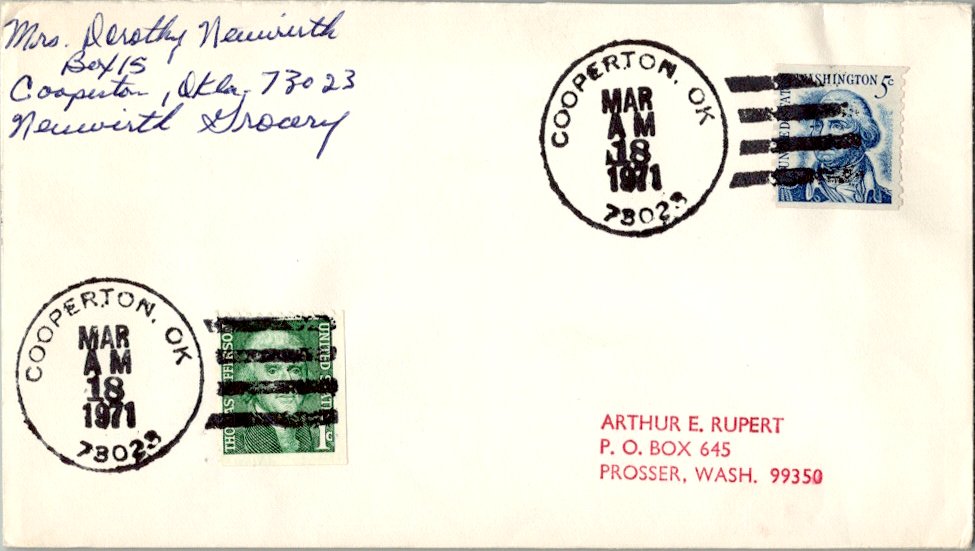 Mrs. Dorothy Neuwirth
Box 15
Cooperton, Okla. 73023
Neuwirth Grocery
COOPERTON, OK
MAR
AM
18
1971
73023
WASHINGTON 5c
UNITED STATES
COOPERTON, OK
MAR
AM
18
1971
73023
THOMAS JEFFERSON
UNITED STATES
1c
ARTHUR E. RUPERT
P. O. BOX 645
PROSSER, WASH. 99350